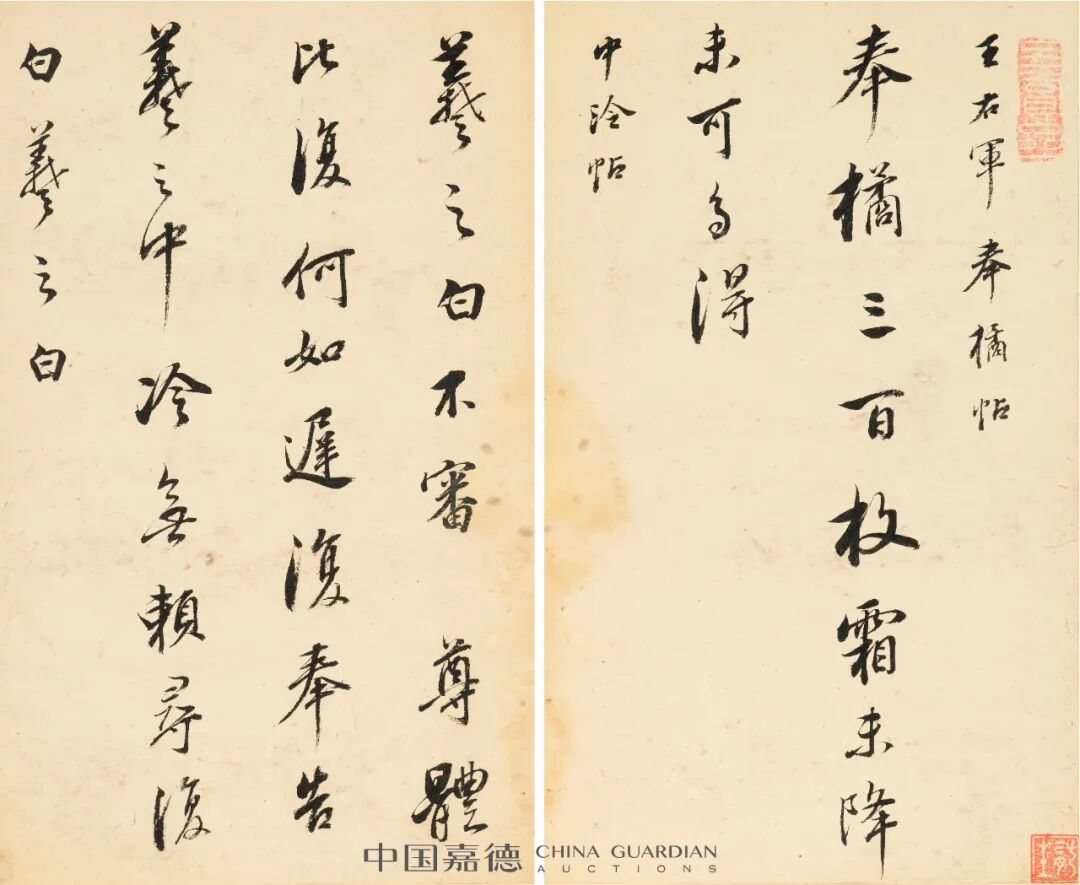 王右軍奉橘帖
奉橘三百枚霜未降
未可多得
中冷帖
羲之白不審 尊體
比復何如遲復奉告
羲之中冷無賴尋復
白羲之白
中国嘉德 CHINA GUARDIAN
AUCTIONS